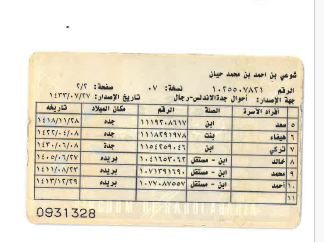 شوعي بن احمد بن محمد حيان
الرقم ١٠٢٥٥٠٧٨٢١ نسخة: ٠٧ صفحة: ٢/٢
جهة الإصدار: أحوال جدة الاندلس-رجال تاريخ الإصدار: ١٤٣٣/٠٧/٢٧
أفراد الأسرة الصلة الرقم مكان الميلاد تاريخه
٥ سعد ابن ١١١٩٢٠٨٦١٧ جده ١٤١٨/١١/٢٨
٦ هيفاء بنت ١١١٨٢٩١٩٧٨ جده ١٤٢٢/٠٤/٠٨
٧ تركي ابن ١١٥٤٢٥٩٠٤٦ جدة ١٤٣٠/٠٦/٠٨
٨ خالد ابن - مستقل ١٠٤١٦٥٠٣٦٣ بريده ١٤٠٥/٠٦/٢٧
٩ محمد ابن - مستقل ١٠٧١٣٩١١٦٩٠ بريده ١٤١١/٠٨/٢٣
١٠ احمد ابن - مستقل ١٠٧٧٠٨٧٥٥٧ بريده ١٤١٣/١٢/٢٩
١١
0931328